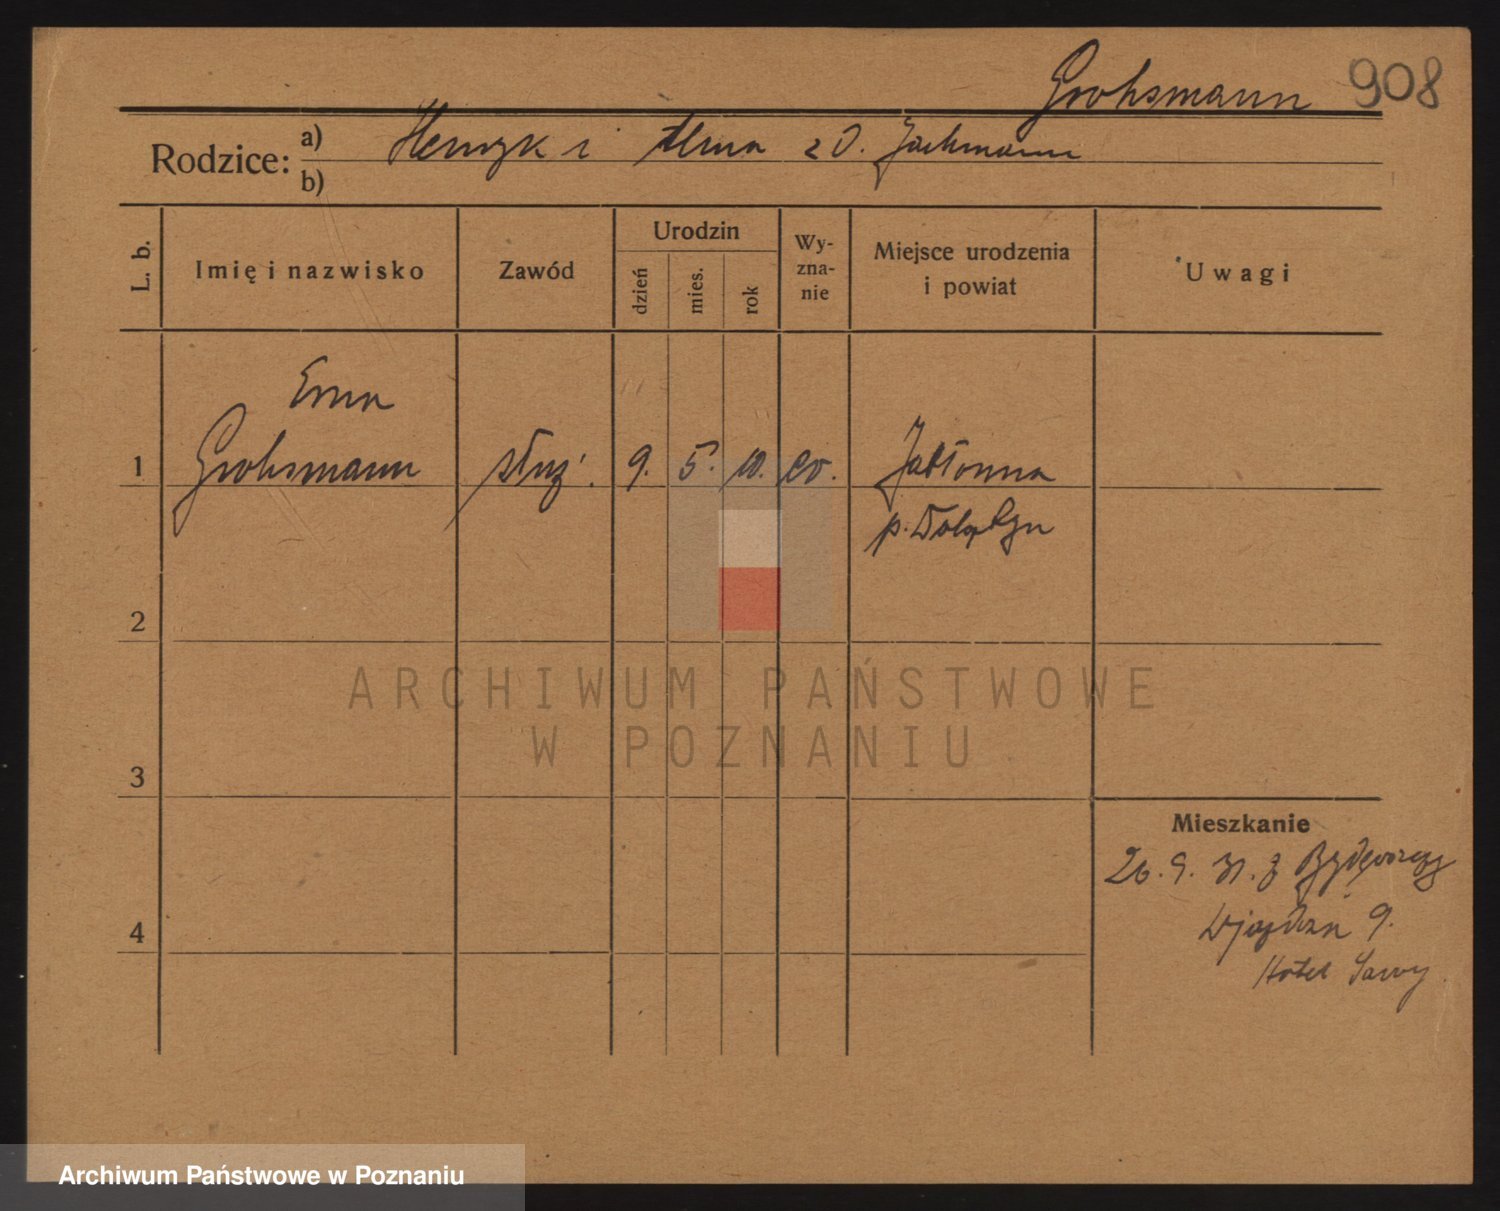 Grohsmann 908
Rodzice: a) Henryk i Alma z D. Jackmann
b)
L. b. Imię i nazwisko Zawód Urodzin dzień mies. rok Wy-zna-nie Miejsce urodzenia i powiat Uwagi
Erna
1 Grohsmann służ. 9. 5. 10. ev. Jabłonna
p.
2
ARCHIWUM PAŃSTWOWE
W POZNANIU
3
Mieszkanie
26. 9. 31. z Bydgoszczy
4 Wjazdzn 9.
Hotel Savoy
Archiwum Państwowe w Poznaniu